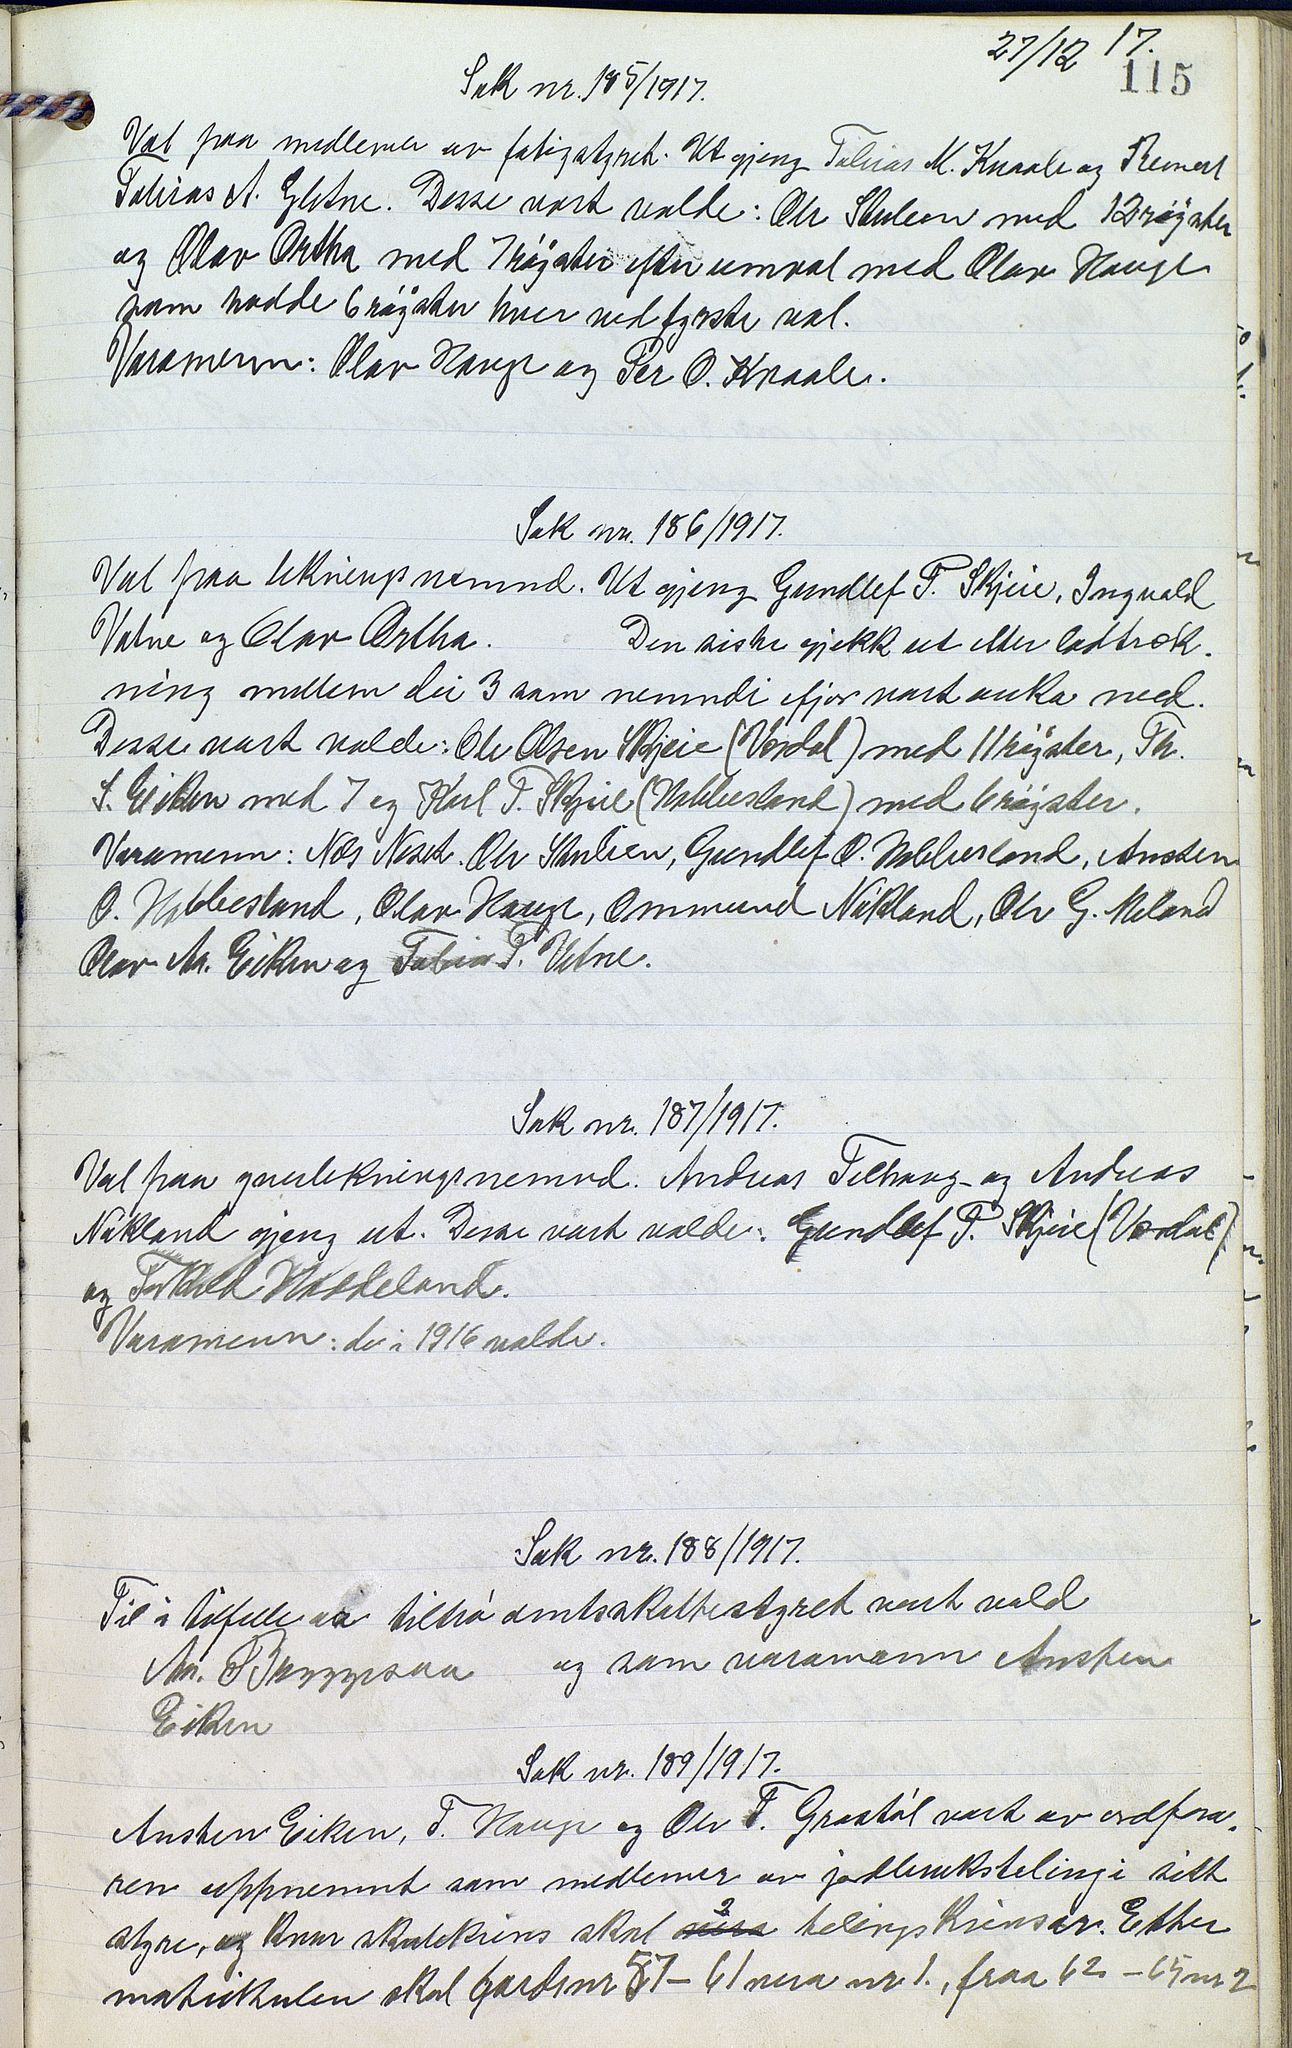 27/12 17.
115
Sak nr. 185/1917.
Val paa medlemer av fatigstyret. Ut gjeng Tobias M. Knaale og Reinert
Tobias A. Gletne. Desse vart valde: Ole Stuleen med 12 røyster
og Olav Ørtha med 7 røyster efter umval med Olav Hauge
som hadde 6 røyster kver ved fyrste val.
Varamenn: Olav Hauge og Per O. Knaale.
Sak nr. 186/1917.
Val paa likningsnemnd. Ut gjeng Gundlef T. Skjeie, Ingvald
Vatne og Olav Ørtha. Den siste gjekk ut etter lodtrek-
ning millom dei 3 som nemndi ifjor vart auka med.
Desse vart valde: Ole Olsen Skjeie (Vordal) med 11 røyster, Th.
S. Eiken med 7 og Karl T. Skjeie (Hobbesland) med 6 røyster.
Varamenn: Nils Neset. Ole Stuleen, Gundlef O. Hobbesland, Ansten
O. Hobbesland, Olav Hauge, Ommund Nakland, Ole G. Meland
Olav An. Eiken og Tobias T. Vatne.
Sak nr. 187/1917.
Val paa yverlikningsnemnd. Andreas Telhaug og Andreas
Nakland gjeng ut. Desse vart valde: Gundlef T. Skjeie (Vordal)
og Torkild Haddeland.
Varamenn: dei i 1916 valde.
Sak nr. 188/1917.
Til i tilfelle aa tiltrø amtsskattestyret vart vald
An. Bryggesaa og som varamann Ansten
Eiken
Sak nr. 189/1917.
Ansten Eiken, T. Hauge og Ole T. Graatøl vart av ordføra-
ren uppnemnt som medlemer av jordbrukstelingi sitt
styre, og kvar skulekrins skal 2 vera telingskrinsar. Etter
matrikulen skal gardsnr 57 - 61 vera nr 1., fraa 62 - 65 nr 2